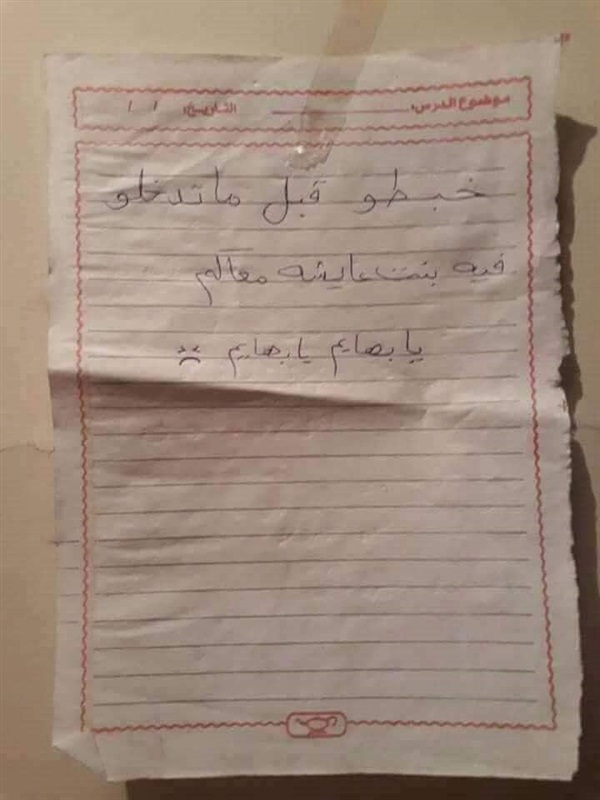 موضوع الدرس: التاريخ: / /
خبطو قبل ماتدخلو
فيه بنت عايشه معاكم
يا بهايم يا بهايم